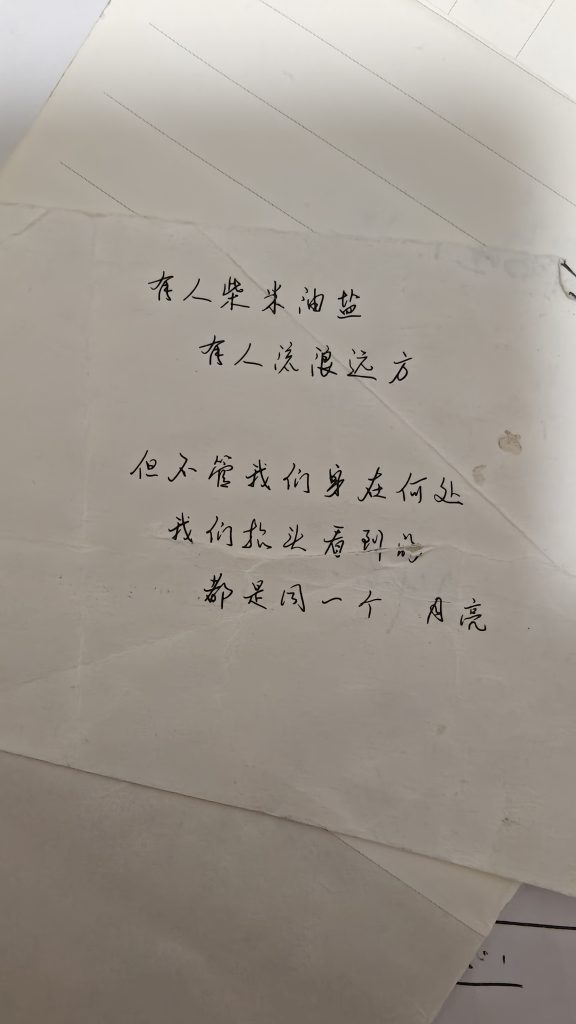 有人柴米油盐
有人流浪远方
但不管我们身在何处
我们抬头看到的
都是同一个 月亮